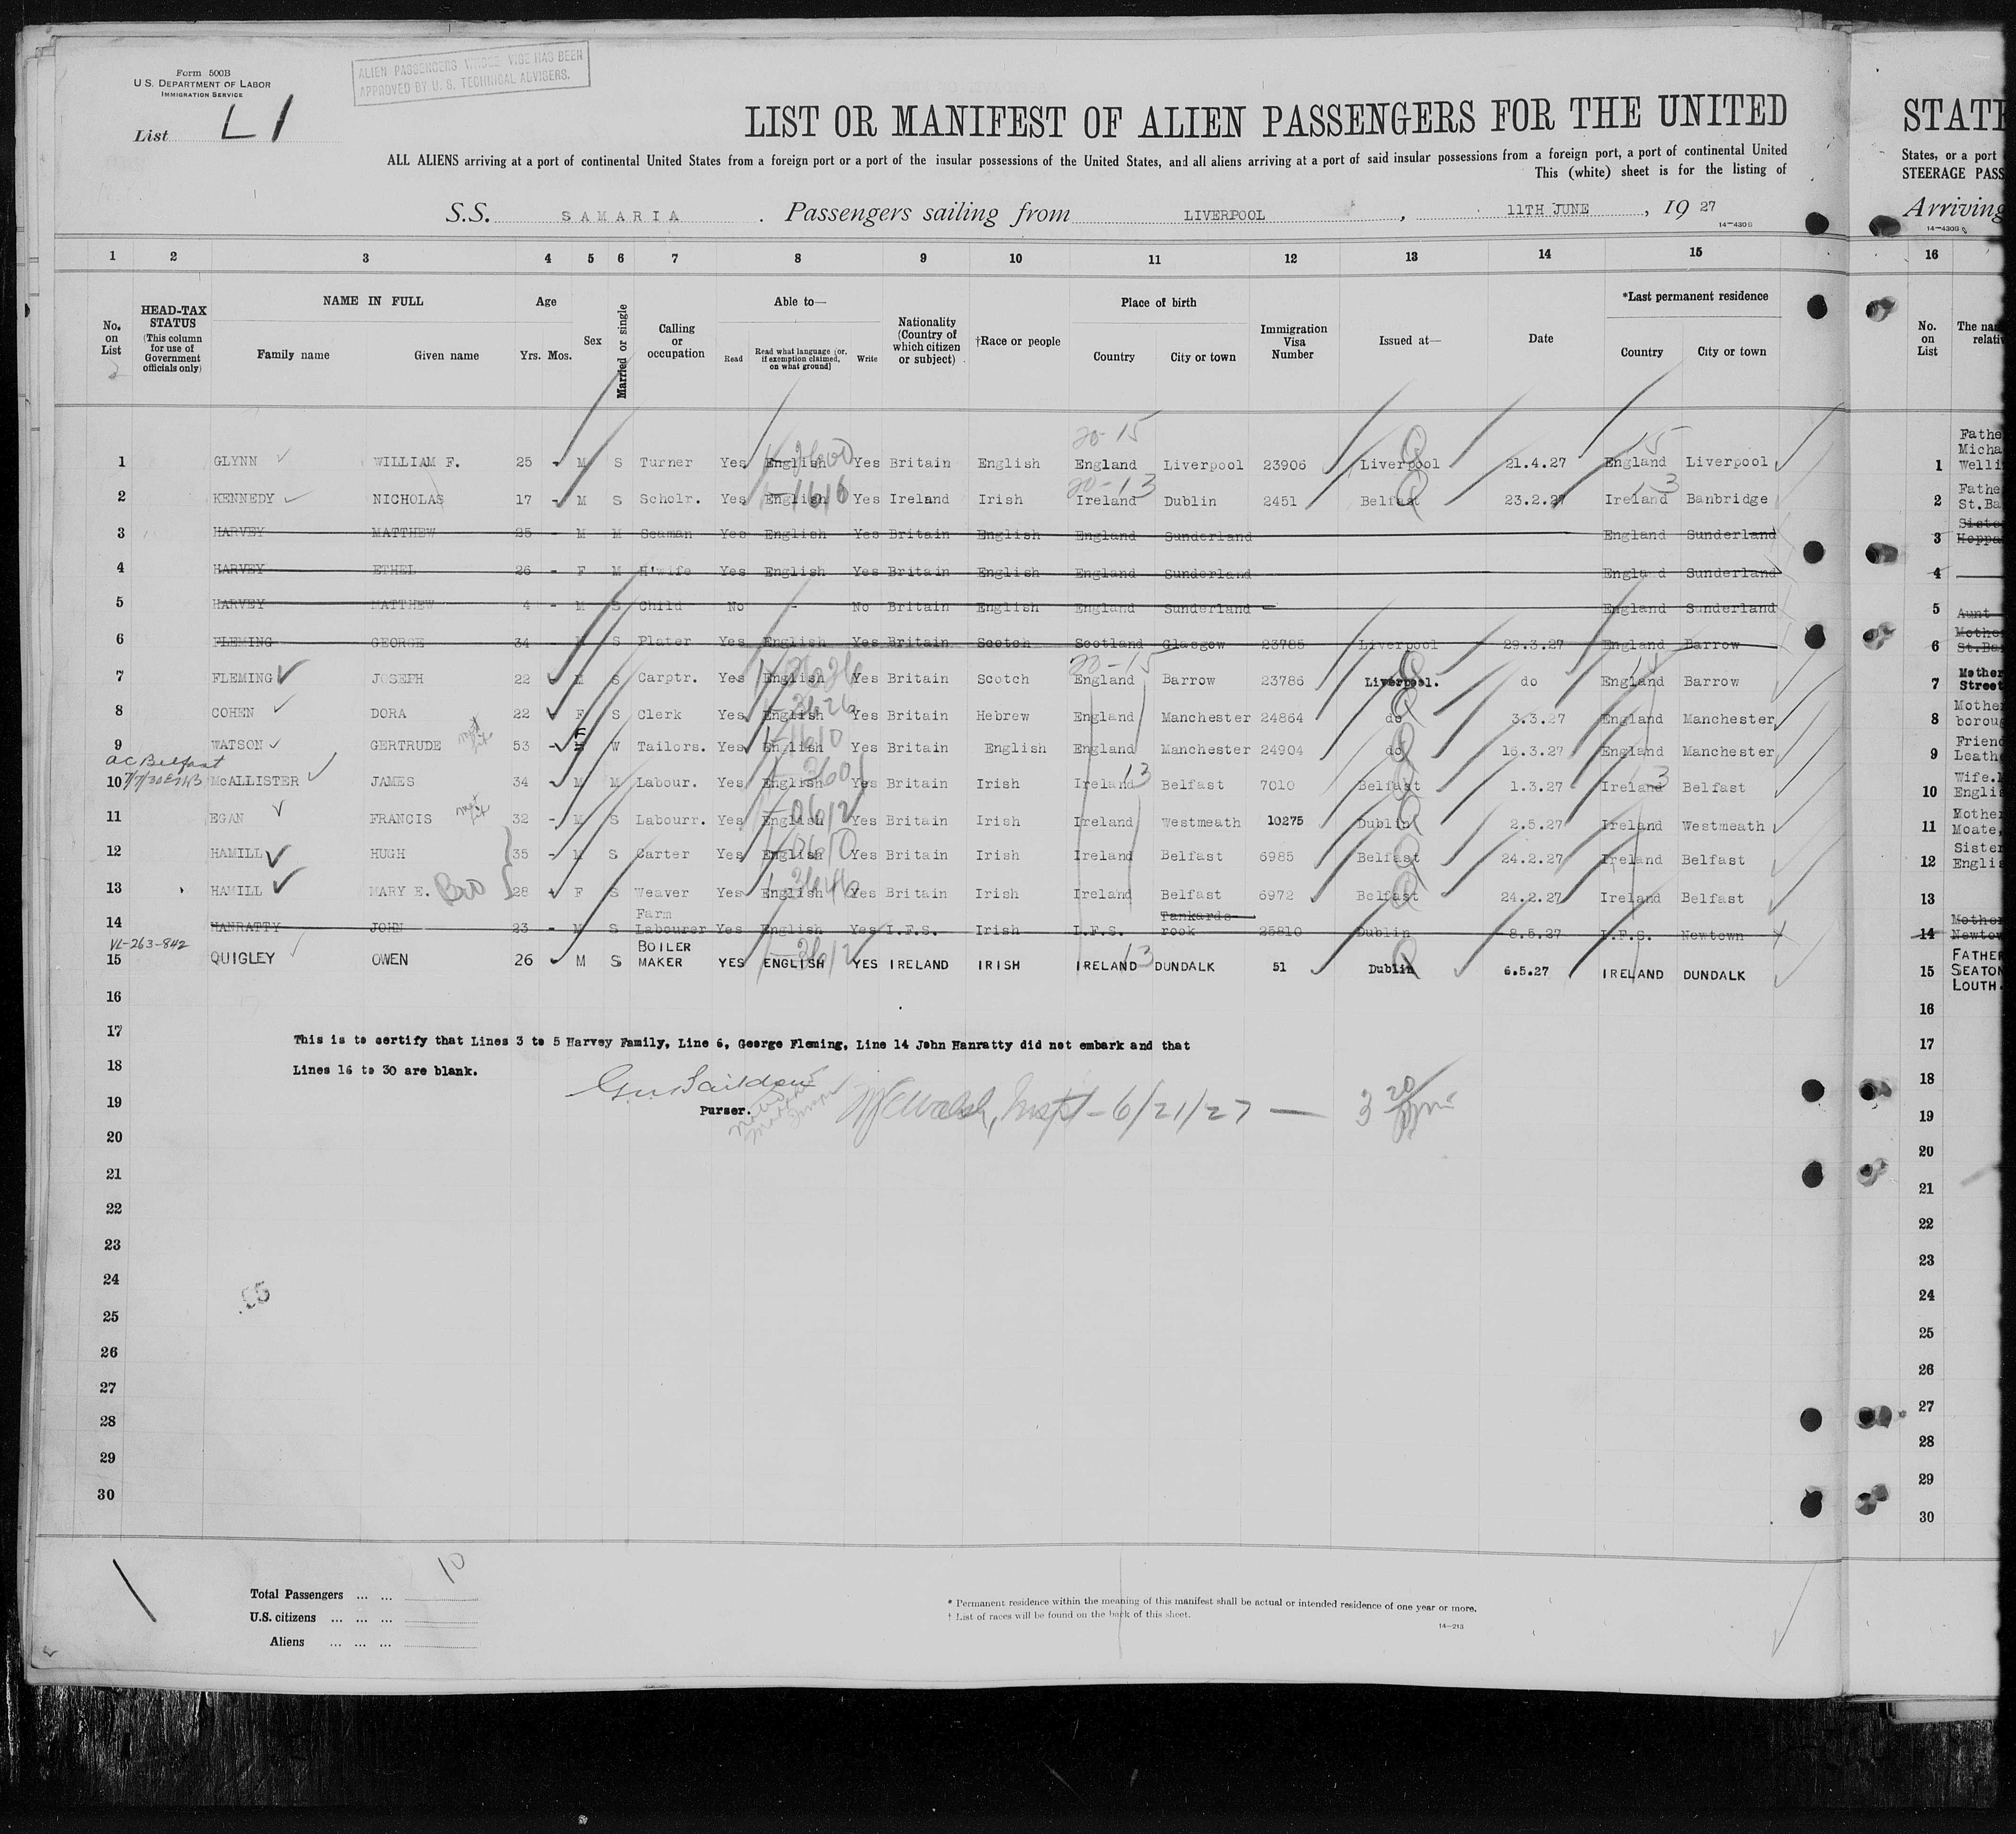 Form 500B
U.S. DEPARTMENT OF LABOR
IMMIGRATION SERVICE
ALIEN PASSENGERS WHOSE VISE HAS BEEN
APPROVED BY U. S. TECHNICAL ADVISERS.
List L1
LIST OR MANIFEST OF ALIEN PASSENGERS FOR THE UNITED
ALL ALIENS arriving at a port of continental United States from a foreign port or a port of the insular possessions of the United States, and all aliens arriving at a port of said insular possessions from a foreign port, a port of continental United
This (white) sheet is for the listing of
S.S. SAMARIA . Passengers sailing from LIVERPOOL , 11TH JUNE , 19 27
14-430B
1 2 3 4 5 6 7 8 9 10 11 12 13 14 15
No. on List
HEAD-TAX STATUS (This column for use of Government officials only)
NAME IN FULL Family name Given name
Age Yrs. Mos.
Sex
Married or single
Calling or occupation
Able to— Read Read what language (or, if exemption claimed, on what ground) Write
Nationality (Country of which citizen or subject)
†Race or people
Place of birth Country City or town
Immigration Visa Number
Issued at—
Date
*Last permanent residence Country City or town
20-15 15
1 GLYNN WILLIAM F. 25 - M S Turner Yes English Yes Britain English England Liverpool 23906 Liverpool 21.4.27 England Liverpool
20-13 3
2 KENNEDY NICHOLAS 17 - M S Scholr. Yes English Yes Ireland Irish Ireland Dublin 2451 Belfast 23.2.27 Ireland Banbridge
3 HARVEY MATTHEW 25 - M M Seaman Yes English Yes Britain English England Sunderland England Sunderland
4 HARVEY ETHEL 26 - F M H'wife Yes English Yes Britain English England Sunderland England Sunderland
5 HARVEY MATTHEW 4 - M S Child No - No Britain English England Sunderland England Sunderland
6 FLEMING GEORGE 34 M S Plater Yes English Yes Britain Scotch Scotland Glasgow 23785 Liverpool 29.3.27 England Barrow
20-15
7 FLEMING JOSEPH 22 M S Carptr. Yes English Yes Britain Scotch England Barrow 23786 Liverpool. do England Barrow
8 COHEN DORA 22 F S Clerk Yes English Yes Britain Hebrew England Manchester 24864 do 3.3.27 England Manchester
9 WATSON GERTRUDE 53 - F W Tailors. Yes English Yes Britain English England Manchester 24904 do 16.3.27 England Manchester
a.c. Belfast
10 McALLISTER JAMES 34 M M Labour. Yes English Yes Britain Irish Ireland 13 Belfast 7010 Belfast 1.3.27 Ireland 3 Belfast
11 EGAN FRANCIS 32 - M S Labourr. Yes English Yes Britain Irish Ireland Westmeath 10275 Dublin 2.5.27 Ireland Westmeath
12 HAMILL HUGH 35 - M S Carter Yes English Yes Britain Irish Ireland Belfast 6985 Belfast 24.2.27 Ireland Belfast
13 HAMILL MARY E. Bro 28 F S Weaver Yes English Yes Britain Irish Ireland Belfast 6972 Belfast 24.2.27 Ireland Belfast
14 HANRATTY JOHN 23 - M S Farm Labourer Yes English Yes I.F.S. Irish I.F.S. Tankards- rook 25810 Dublin 8.5.27 I.F.S. Newtown
VL-263-842
15 QUIGLEY OWEN 26 M S BOILER MAKER YES ENGLISH YES IRELAND IRISH IRELAND 13 DUNDALK 51 Dublin 6.5.27 IRELAND DUNDALK
16
17
This is to certify that Lines 3 to 5 Harvey Family, Line 6, George Fleming, Line 14 John Hanratty did not embark and that
18
Lines 16 to 30 are blank.
19
Purser. 6/21/27 — 3 20
20
21
22
23
24
25
26
27
28
29
30
Total Passengers ... ... 10
U.S. citizens ... ... ...
Aliens ... ... ...
* Permanent residence within the meaning of this manifest shall be actual or intended residence of one year or more.
† List of races will be found on the back of this sheet.
14-213
STATE
States, or a port
STEERAGE PASS
Arriving
14-430B
16
No. on List
The nam
relativ
1 Fathe
Micha
Welli
2 Father
St.Ba
3 Siste
Hoppa
4
5 Aunt
6 Mother
St.Ba
7 Mother
Street
8 Mother
boroug
9 Friend
Leath
10 Wife.
Englis
11 Mother
Moate,
12 Sister
Englis
13
14 Mother
Newtow
15 FATHER
SEATON
LOUTH.
16
17
18
19
20
21
22
23
24
25
26
27
28
29
30